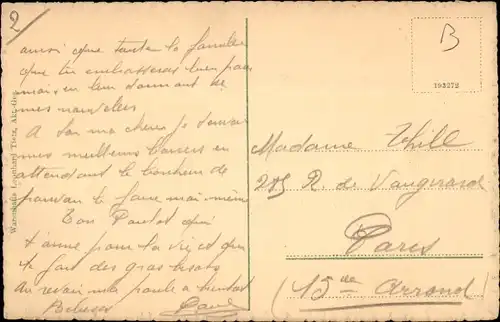 2
ainsi que toute la famille
que tu embrasseras bien pour
moi en leur donnant de
mes nouvelles
A toi ma chérie je t'envoie
mes meilleurs baisers en
attendant le bonheur de
pouvoir le faire moi-même
Ton Paulot qui
t'aime pour la vie et qui
te fait des gros bisous
Au revoir ma poule a bientôt
Paul
Warenhaus Leonhard Tietz, Akt.-Ges.
B
193272
Madame Thill
215 R. de Vaugirard
Paris
(15de Arrond)